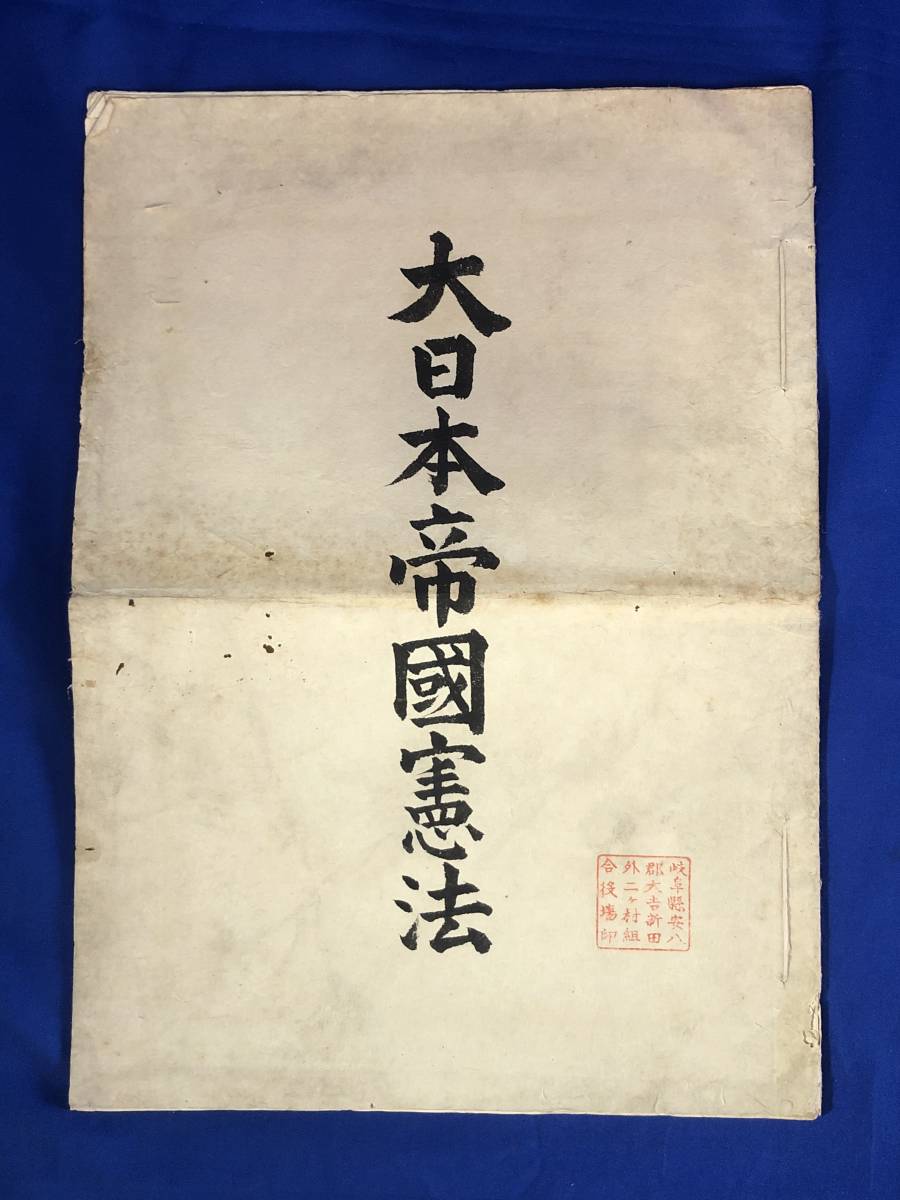 大日本帝國憲法
岐阜縣安八
郡大吉新田
外二ヶ村組
合役場印